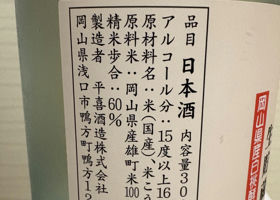 品目 日本酒 内容量30
アルコール分：15度以上16
原材料名：米(国産)米こう
原料米：岡山県産雄町米100
精米歩合：60%
製造者 平喜酒造株式会社
岡山県浅口市鴨方町鴨方12
岡山県産白桃酵